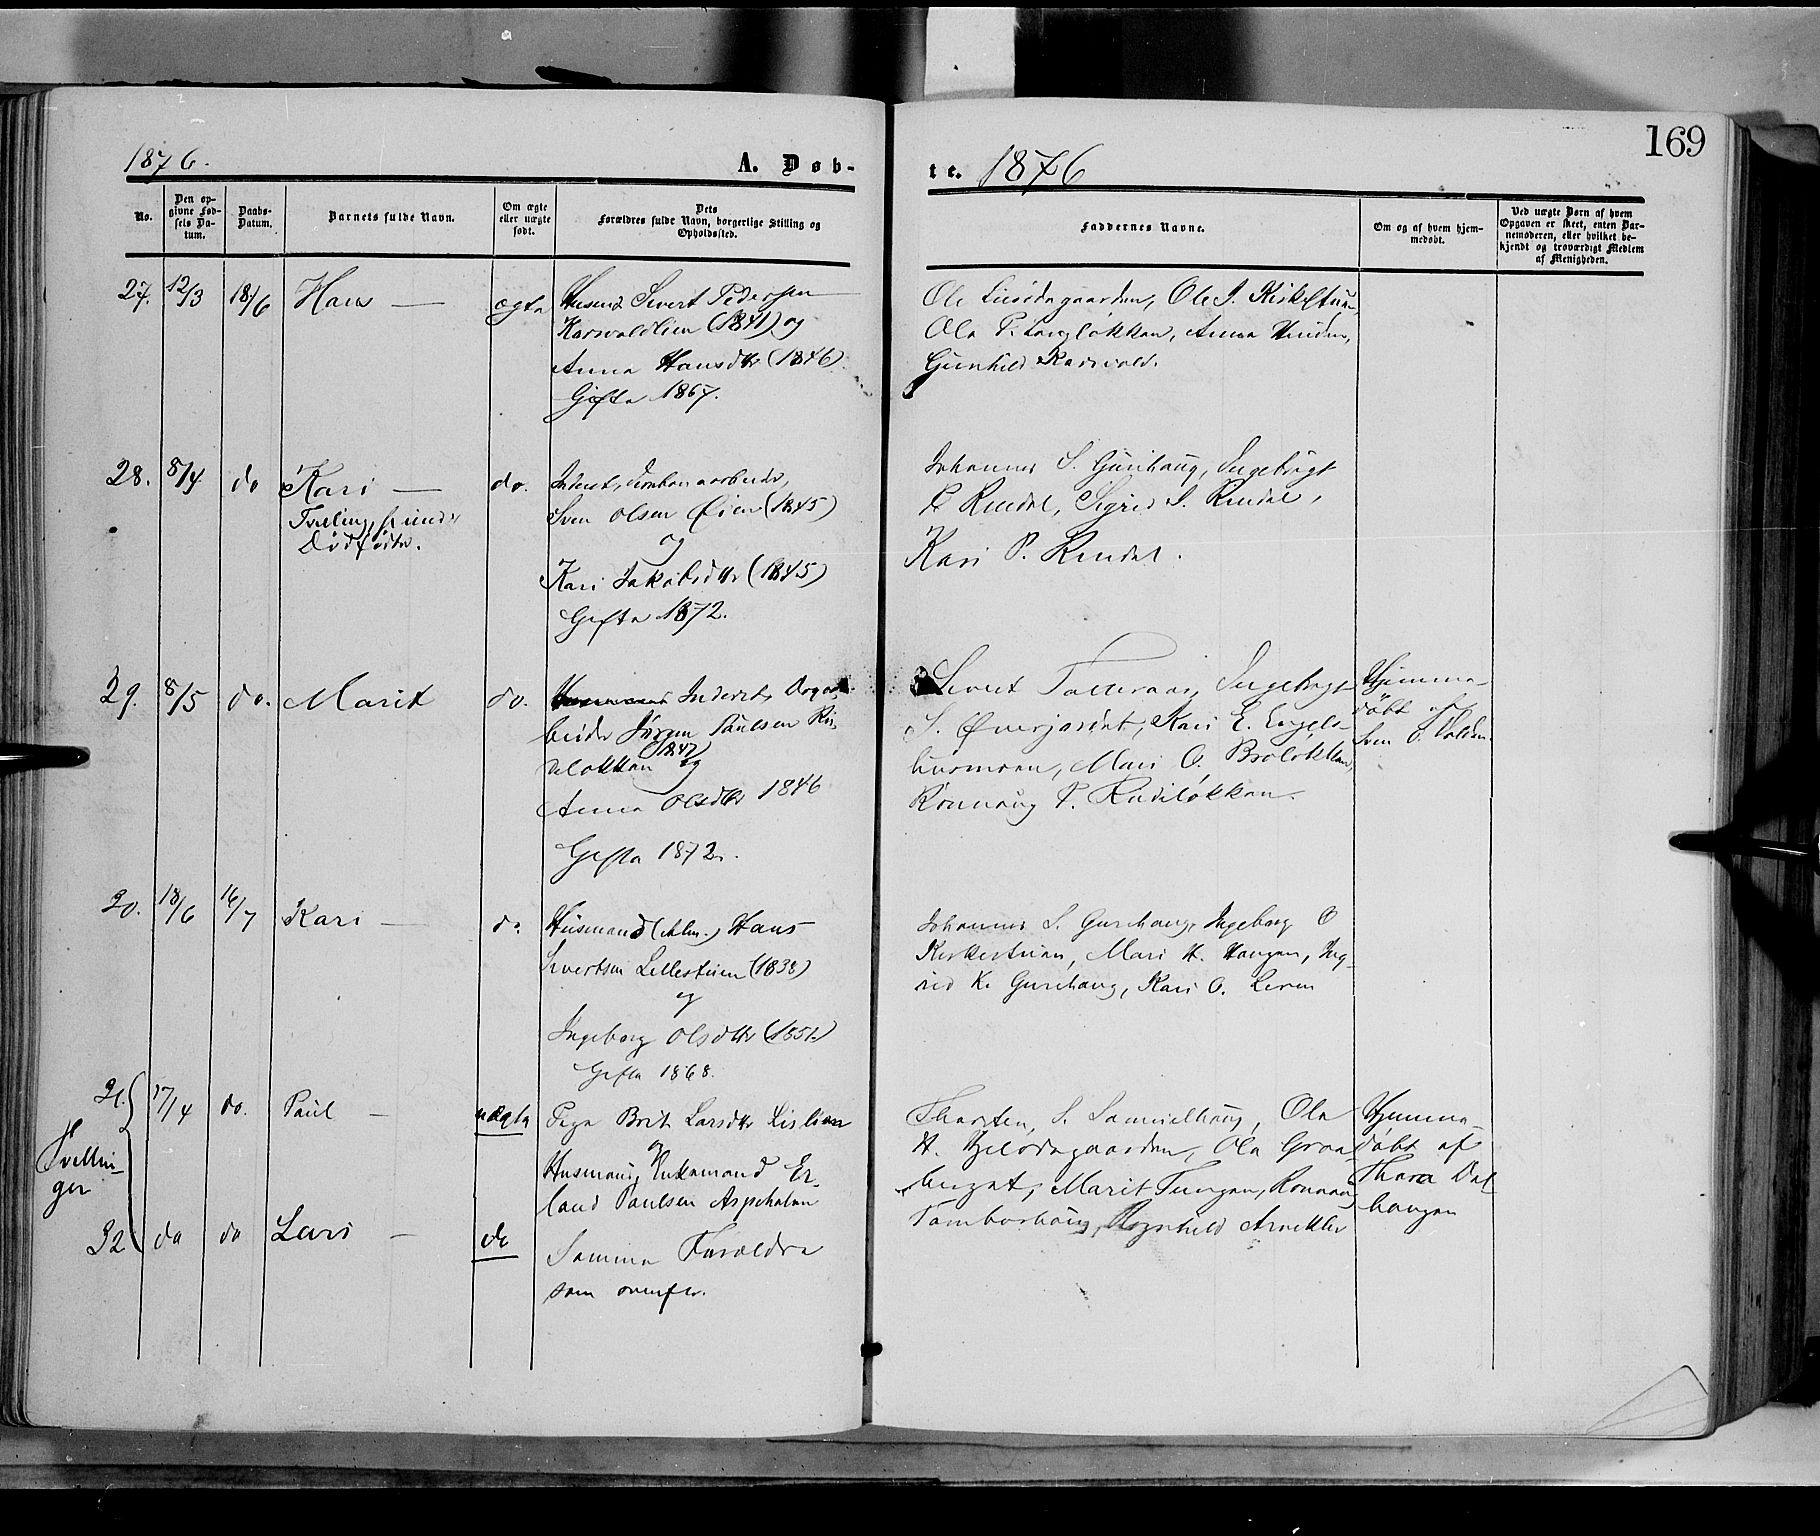 169
1876.
A. Døb-
te. 1876
No.
Den op-
givne Fød-
sels Da-
tum.
Daabs-
Datum.
Barnets fulde Navn.
Om ægte
eller uægte
født.
Dets
Forældres fulde Navn, borgerlige Stilling og
Opholdssted.
Faddernes Navne.
Om og af hvem hjem-
medøbt.
Ved uægte Børn af hvem
Opgaven er skeet, enten Bar-
nemoderen, eller hvilket be-
kjendt og troværdigt Medlem
af Menigheden.
27. 12/3 18/6 Hans — ægte
Husmd Sivert Pedersen
Karsvaldlien (1841) og
Anna Hansdtr (1846)
Gifte 1867.
Ole, Ole J. Kirkestuen,
Ola P. Langløkken, Anna
Gunhild Karsvold.
28. 8/4 do Kari — do.
Tvilling,
Dødfødte.
Inderst, Jernbanearbeider,
Sven Olsen Øien (1845)
og
Kari Jakobsdtr (1845)
Gifte 1872.
Johannes S. Gurihaug, Ingebrigt
Rendal, Sigrid S. Rendal,
Kari P. Rendal.
29. 8/5 do. Marit do.
Husmand Inderst, Dagar-
beider Jørgen Paulsen Ri-
seløkken (1847) og
Anna Olsdtr 1846
Gifte 1872.
Sivert, Ingebrigt
S. Øverjordet, Kari E. Engels-
husmoen, Mari O. Broløkken,
Rønnaug P. Riseløkken.
Hjemme-
døbt af
Sven O.
30. 18/6 16/7 Kari — do
Husmand (Alm.) Hans
Sivertsen Lillestuen (1838)
og
Ingeborg Olsdtr (1851)
Gifte 1868.
Johannes S. Gurihaug, Ingeborg O
Kirkestuen, Mari H. Haugen, Ing-
rid K. Gurihaug, Kari O. Lien
Tvillin-
ger
31. 17/4 do. Paul — uægte
Pige Brit Larsdtr Lislien
og
Husmand, Enkemand Er-
land Paulsen Aspeholen
Thorsten S. Samuelhaug, Ola
H., Ola
Marit Tungen, Rønnaug
Tamburhaug, Ragnhild
Hjemme-
døbt af
Thora Dal-
haugen
32 do do Lars — do
Samme Forældre
som ovenfor.